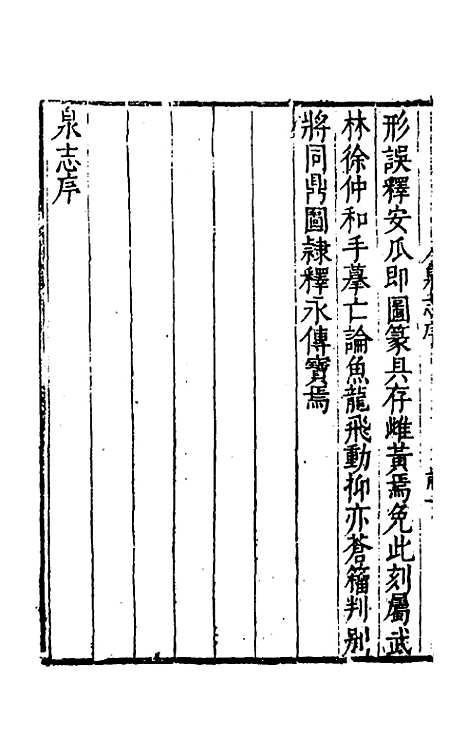 形誤釋安瓜即圖篆具存雌黃焉免此刻屬武
林徐仲和手摹亡論魚龍飛動抑亦蒼籀判別
將同鼎圖隷釋永傳寶焉
泉志序